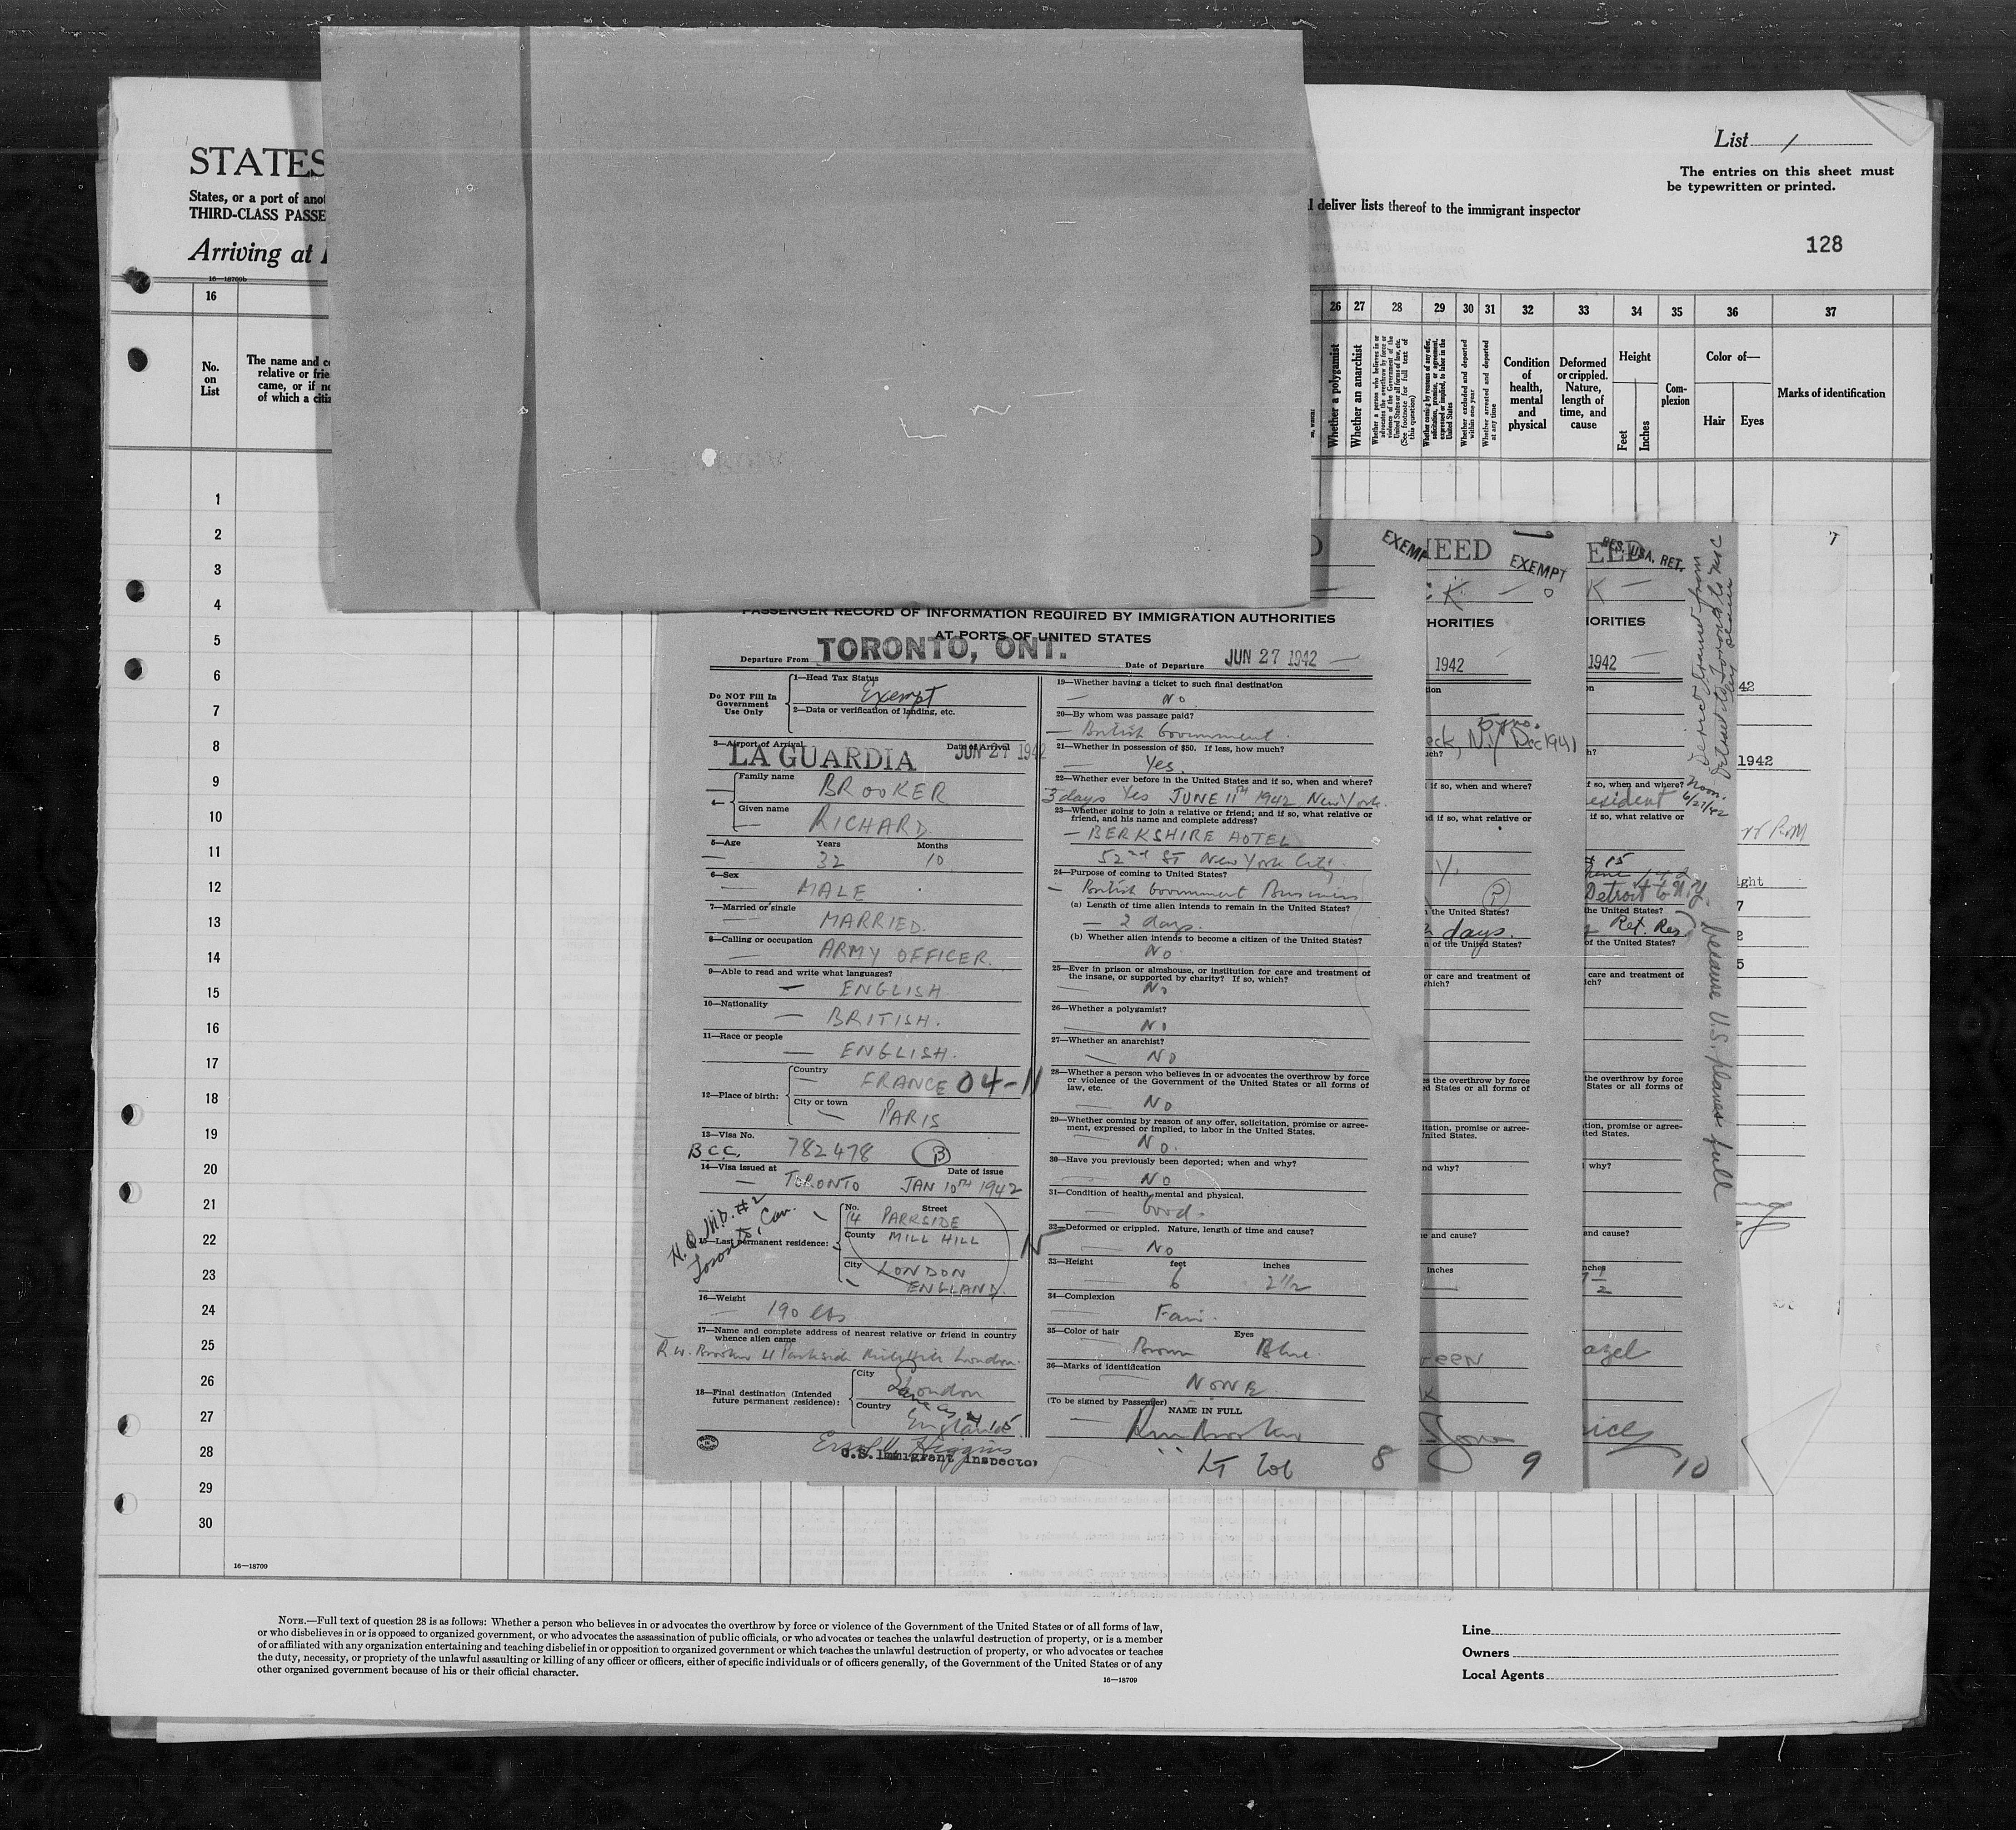 STATES
States, or a port of
THIRD-CLASS PASSE
Arriving at
List 1
The entries on this sheet must
be typewritten or printed.
deliver lists thereof to the immigrant inspector
128
16—18709b
16
26 27 28 29 30 31 32 33 34 35 36 37
No.
on
List
The name and
relative or
came, or if
of which a
Whether a polygamist
Whether an anarchist
Whether a person who believes in or advocates the overthrow by force or violence of the Government of the United States or all forms of law, etc. (See footnote for full text of this question)
Whether coming by reasons of any offer, solicitation, promise, or agreement, expressed or implied, to labor in the United States
Whether excluded and deported within one year
Whether arrested and deported at any time
Condition
of
health,
mental
and
physical
Deformed
or crippled.
Nature,
length of
time, and
cause
Height
Feet
Inches
Com-
plexion
Color of—
Hair Eyes
Marks of identification
1
2
3
4
5
6
7
8
9
10
11
12
13
14
15
16
17
18
19
20
21
22
23
24
25
26
27
28
29
30
16—18709
PASSENGER RECORD OF INFORMATION REQUIRED BY IMMIGRATION AUTHORITIES
AT PORTS OF UNITED STATES
Departure From TORONTO, ONT. Date of Departure JUN 27 1942
Do NOT Fill In
Government
Use Only
1—Head Tax Status
Exempt
2—Data or verification of landing, etc.
3—Airport of Arrival Date of Arrival
LA GUARDIA JUN 27 1942
4—
Family name
BROOKER
Given name
RICHARD
5—Age Years Months
32 10
6—Sex
MALE
7—Married or single
MARRIED.
8—Calling or occupation
ARMY OFFICER.
9—Able to read and write what languages?
ENGLISH
10—Nationality
BRITISH.
11—Race or people
ENGLISH.
12—Place of birth:
Country
FRANCE 04-11
City or town
PARIS
13—Visa No.
B.C.C. 782478 B
14—Visa issued at Date of issue
TORONTO JAN 10TH 1942
H.Q. M.D. #2
Toronto, Can.
15—Last permanent residence:
No. Street
14 PARKSIDE
County MILL HILL
City LONDON
ENGLAND.
16—Weight
190 lbs
17—Name and complete address of nearest relative or friend in country
whence alien came
R.W. Brooker 14 Parkside Mill Hill London.
18—Final destination (Intended
future permanent residence):
City
London
Same as # 15
Country
England
Higgins
U.S. Immigrant Inspector
19—Whether having a ticket to such final destination
No.
20—By whom was passage paid?
British Government.
21—Whether in possession of $50. If less, how much?
Yes.
22—Whether ever before in the United States and if so, when and where?
3 days Yes JUNE 11TH 1942 New York.
23—Whether going to join a relative or friend; and if so, what relative or
friend, and his name and complete address?
BERKSHIRE HOTEL
52nd ST New York City.
24—Purpose of coming to United States?
British Government Business
(a) Length of time alien intends to remain in the United States?
2 days.
(b) Whether alien intends to become a citizen of the United States?
No.
25—Ever in prison or almshouse, or institution for care and treatment of
the insane, or supported by charity? If so, which?
No
26—Whether a polygamist?
No
27—Whether an anarchist?
No
28—Whether a person who believes in or advocates the overthrow by force
or violence of the Government of the United States or all forms of
law, etc.
No
29—Whether coming by reason of any offer, solicitation, promise or agree-
ment, expressed or implied, to labor in the United States.
No.
30—Have you previously been deported; when and why?
No
31—Condition of health, mental and physical.
Good.
32—Deformed or crippled. Nature, length of time and cause?
No
33—Height feet inches
6 2½
34—Complexion
Fair.
35—Color of hair Eyes
Brown Blue.
36—Marks of identification
NONE.
(To be signed by Passenger)
NAME IN FULL
RW Brooker
8
EXEMP
EED
EXEMPT
K
HORITIES
1942
eck, N.Y Dec 1941
if so, when and where?
d if so, what relative or
the United States?
days.
n of the United States?
or care and treatment of
which?
s the overthrow by force
d States or all forms of
itation, promise or agree-
nited States.
nd why?
e and cause?
inches
reen
9
EED
RES. USA. RET.
K
IORITIES
1942
f so, when and where?
esident
if so, what relative or
# 15
Detroit to N.Y.
the United States?
Ret. Res
of the United States?
care and treatment of
ich?
the overthrow by force
States or all forms of
tion, promise or agree-
ited States.
why?
and cause?
nches
½
azel
10
Noon.
6/27/42
because U.S. planes full
7
42
1942
ight
7
2
5
NOTE.—Full text of question 28 is as follows: Whether a person who believes in or advocates the overthrow by force or violence of the Government of the United States or of all forms of law,
or who disbelieves in or is opposed to organized government, or who advocates the assassination of public officials, or who advocates or teaches the unlawful destruction of property, or is a member
of or affiliated with any organization entertaining and teaching disbelief in or opposition to organized government or which teaches the unlawful destruction of property, or who advocates or teaches
the duty, necessity, or propriety of the unlawful assaulting or killing of any officer or officers, either of specific individuals or of officers generally, of the Government of the United States or of any
other organized government because of his or their official character.
16—18709
Line
Owners
Local Agents